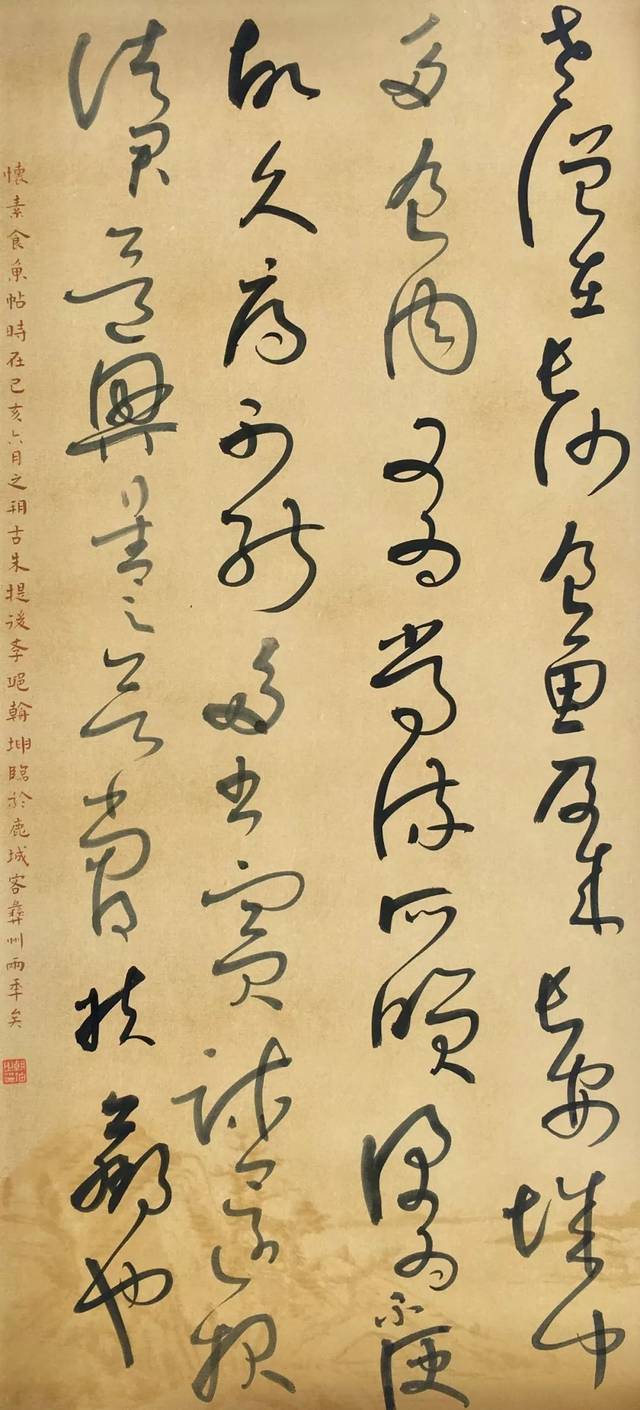 老僧在長沙食魚及來長安城中
多食肉又為常流所笑深為不便
故久病不能多書實疏還報
諸君欲興善之會當得扶羸也
懷素食魚帖時在己亥六月之朔古朱提後李翰坤臨於鹿城客彝州雨季矣